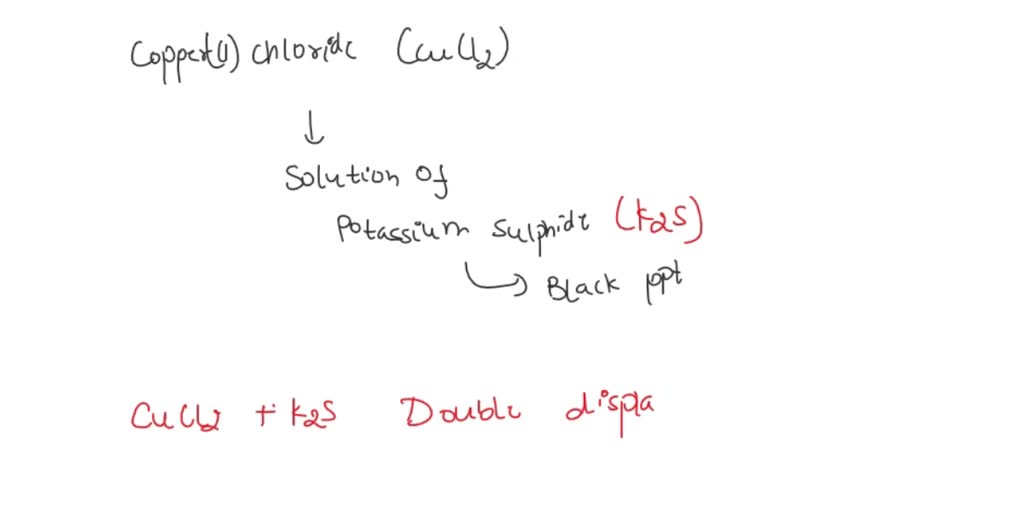 Copper(II) chloride (CuCl2)
Solution of
Potassium sulphide (K2S)
Black ppt
CuCl2 + K2S Double displa